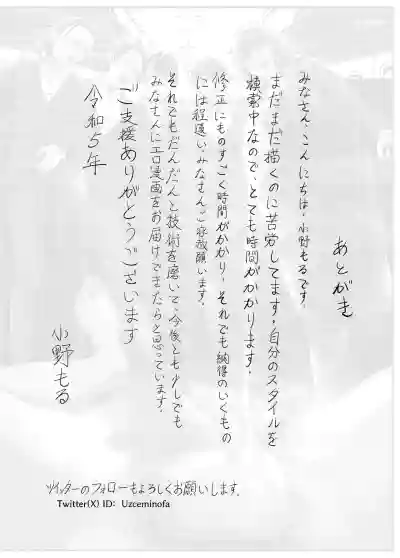 あとがき
みなさん、こんにちは。小野もるです。
まだまだ描くのに苦労してます。自分のスタイルを
模索中なので、とても時間がかかります。
修正にものすごく時間がかかり、それでも納得のいくもの
には程遠い、みなさんご容赦願います。
それでもだんだんと技術を磨いて、今後とも少しでも
みなさんにエロ漫画をお届けできたらと思っています。
ご支援ありがとうございます
令和5年
小野もる
ツイッターのフォローもよろしくお願いします。
Twitter(X) ID: Uzceminofa